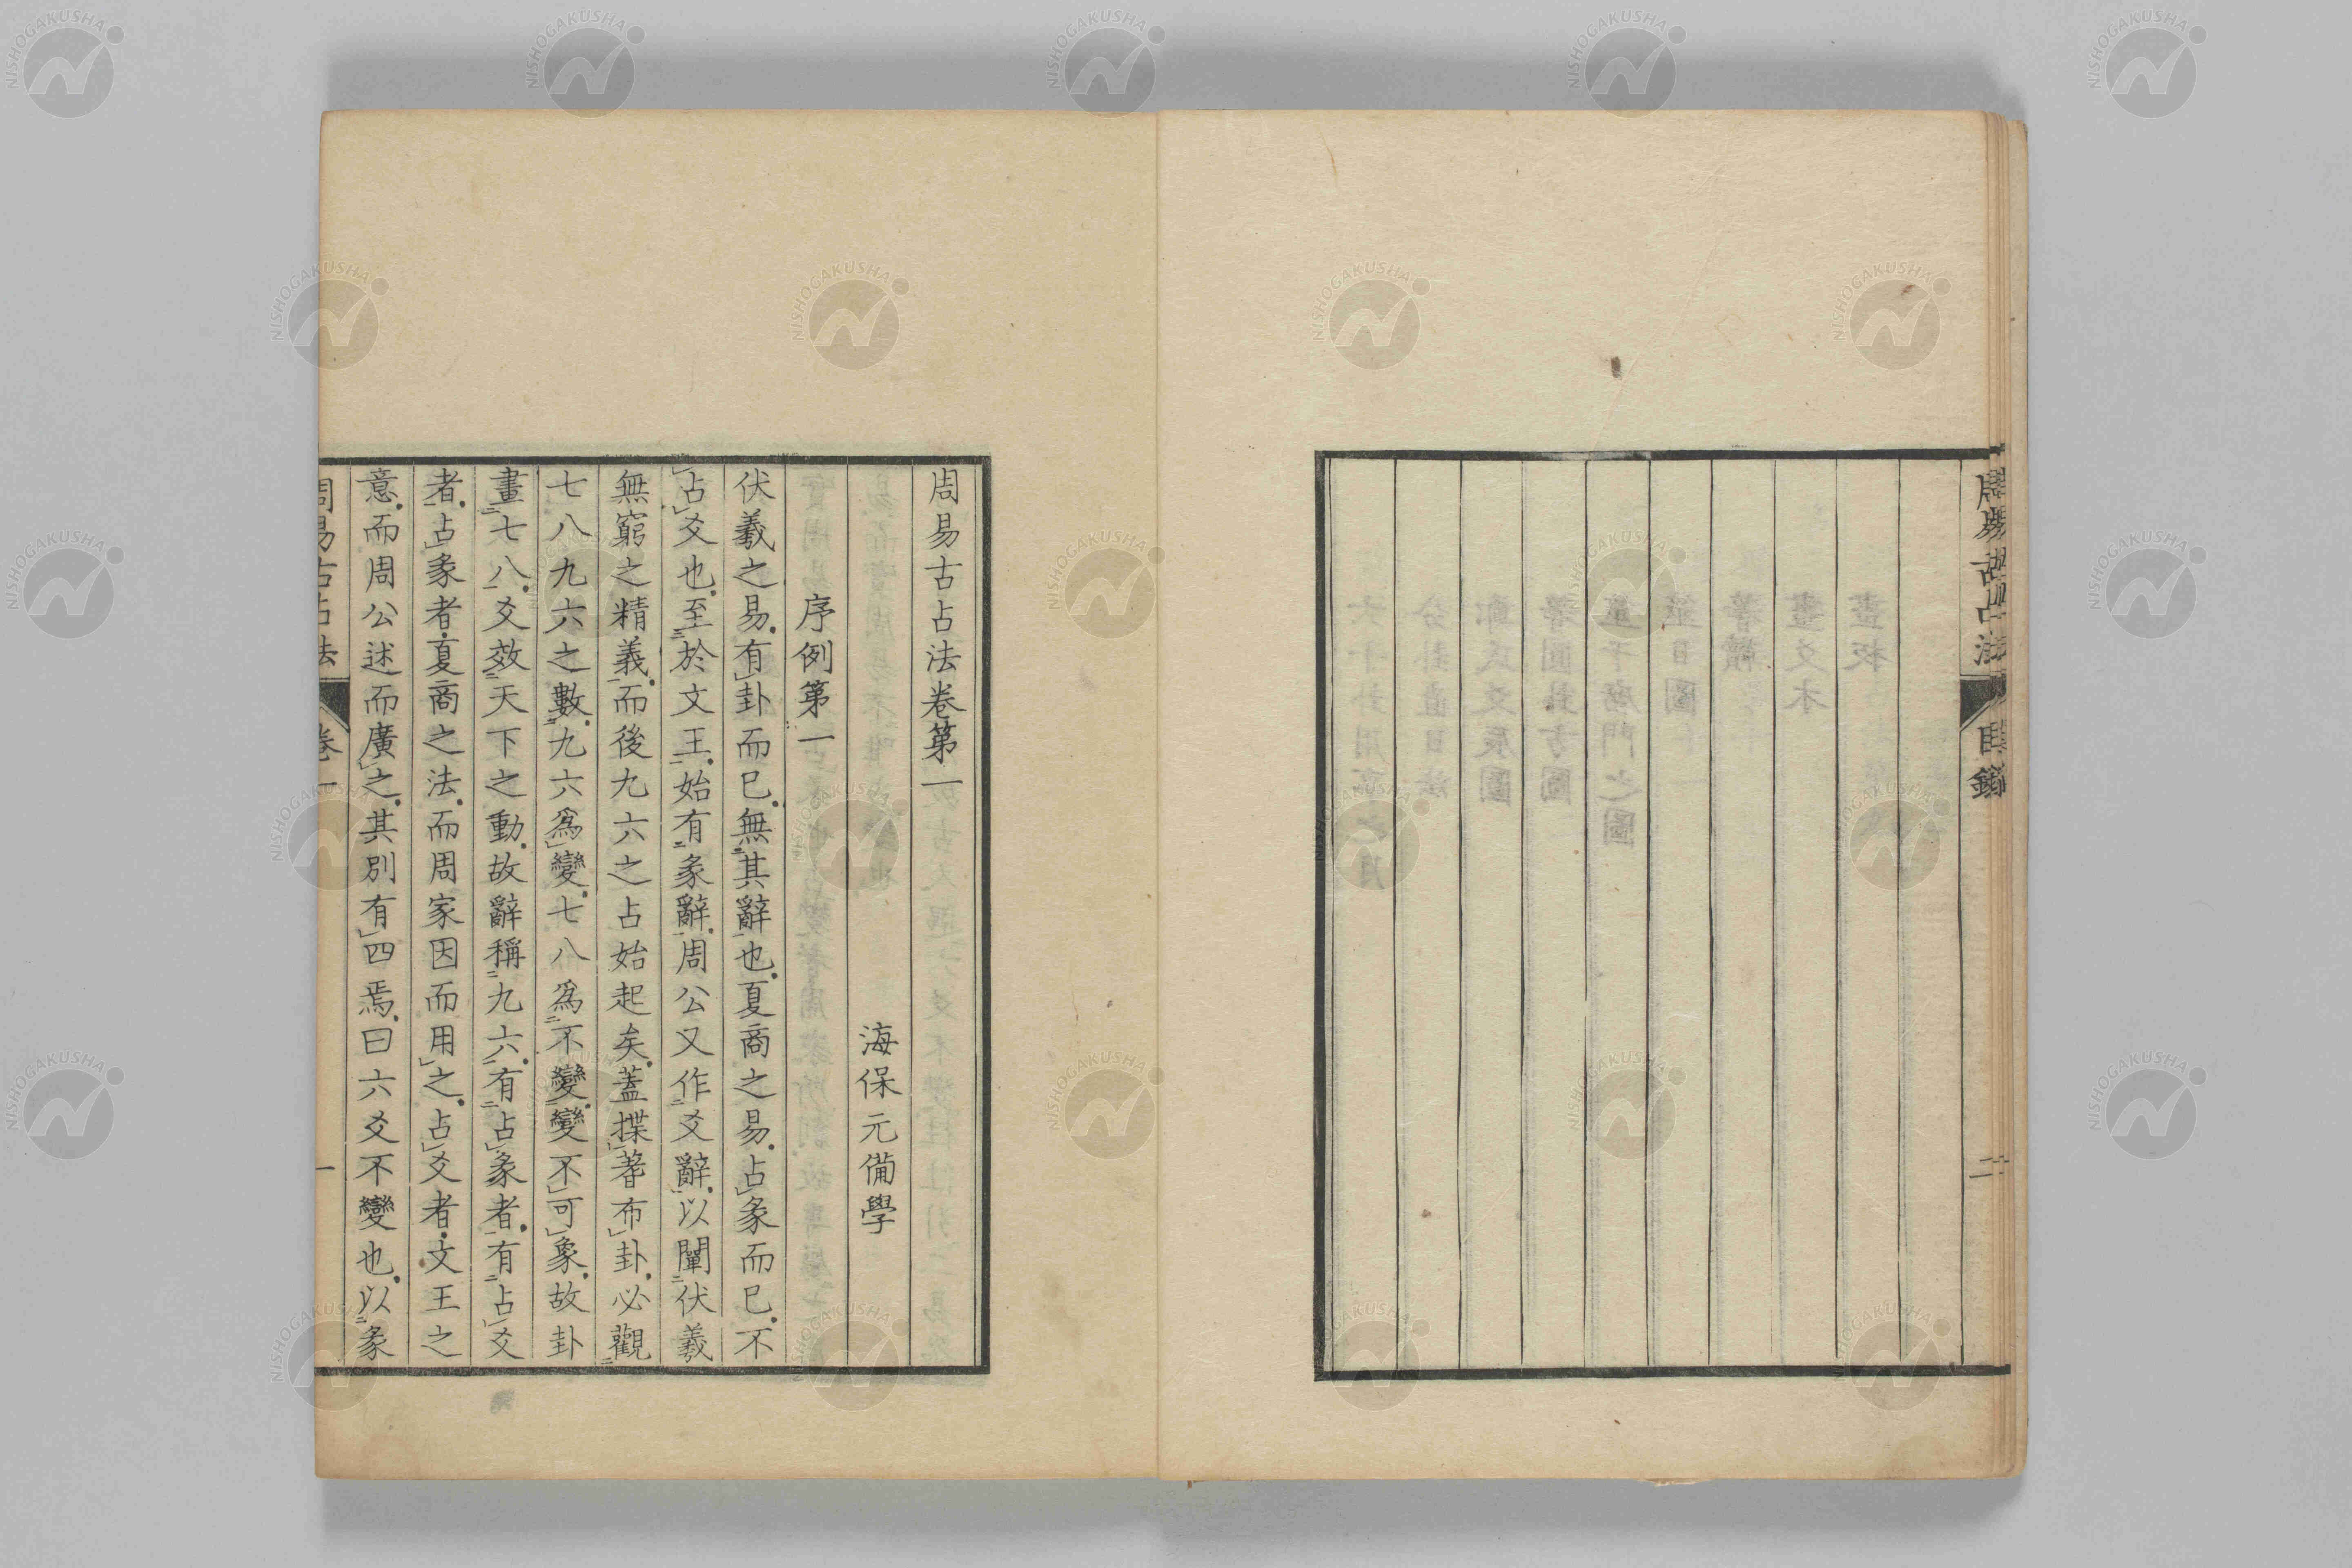 周易古占法 目錄 二
周易古占法卷第一
海保元備學
序例第一
伏羲之易有卦而已無其辭也夏商之易占彖而已不
占爻也至於文王始有彖辭周公又作爻辭以闡伏羲
無窮之精義而後九六之占始起矣蓋揲蓍布卦必觀
七八九六之數九六爲變七八爲不變變不可象故卦
畫七八爻效天下之動故辭稱九六有占彖者有占爻
者占彖者夏商之法而周家因而用之占爻者文王之
意而周公述而廣之其別有四焉曰六爻不變也以彖
周易古占法 卷一 一
NISHOGAKUSHA